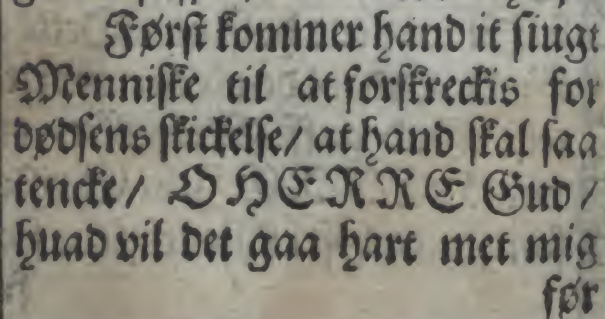 Først kommer hand it siugt
Menniske til at forskreckis for
dødsens skickelse/ at hand skal saa
tencke/ O HERRE Gud/
huad vil det gaa hart met mig
før